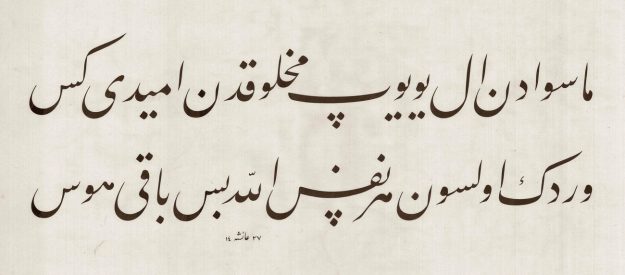 ماسوادن ال یویوپ مخلوقدن امیدی کس
وردك اولسون هر نفس الله بس باقی هوس
٢٧ عائشه ١٤